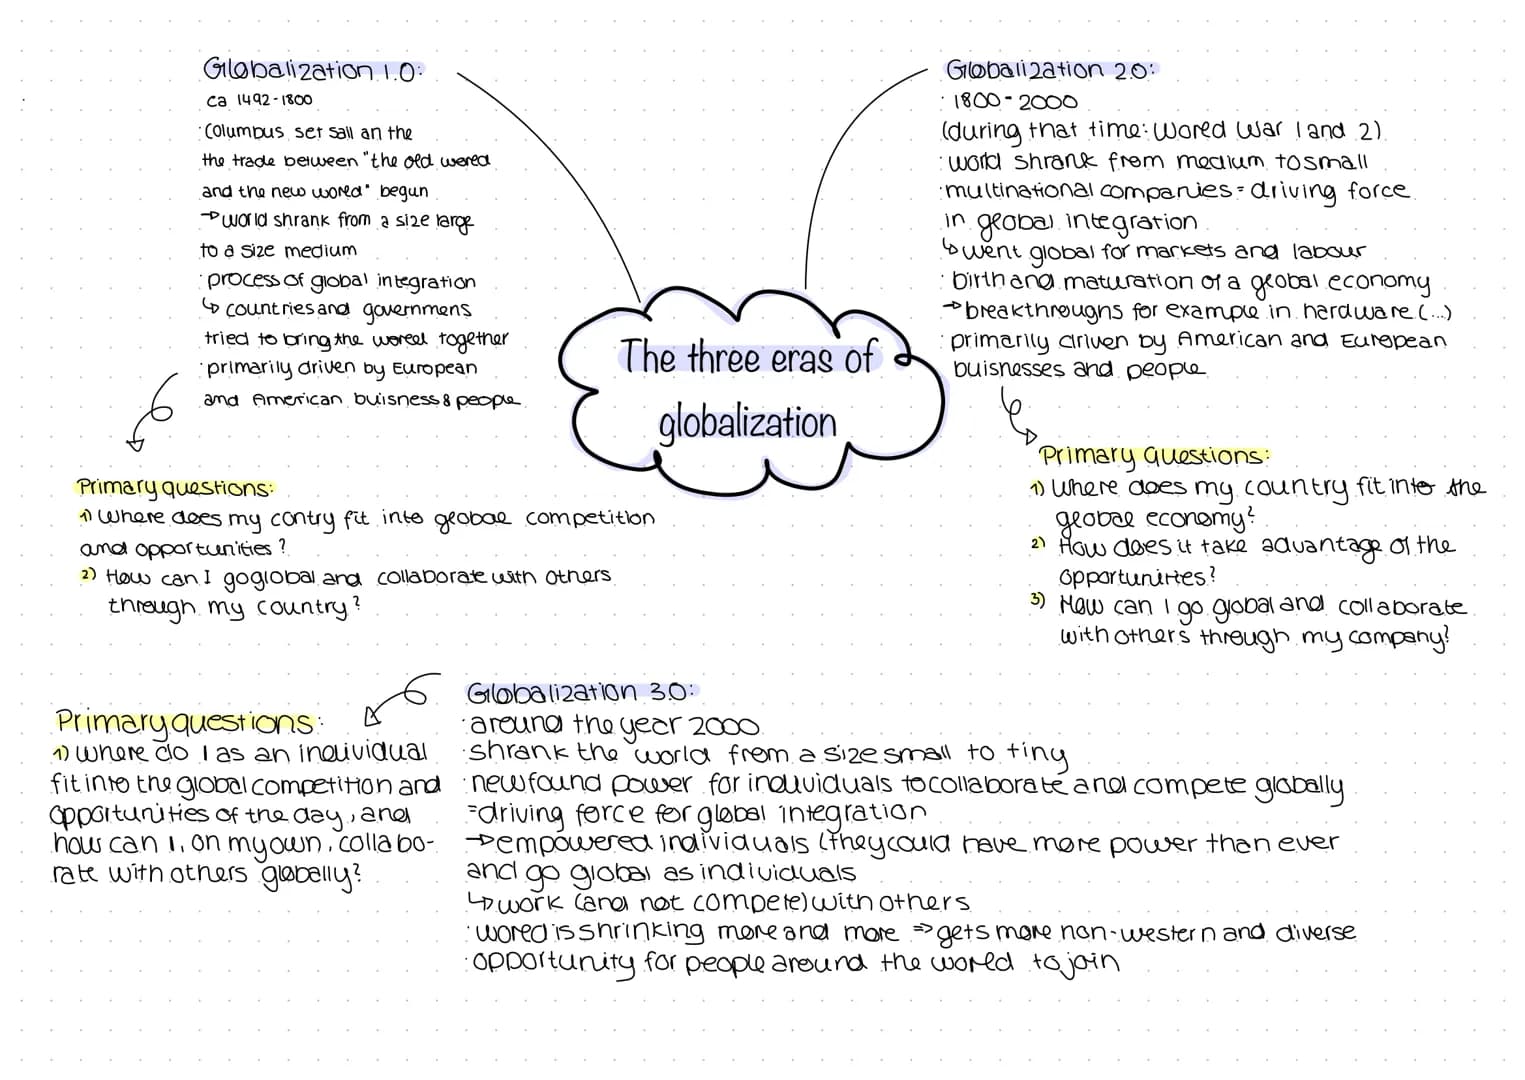 The three eras of
globalization
Globalization 1.0:
ca 1492-1800
·Columbus set sail an the
the trade between "the old world
and the new world" begun
→world shrank from a size large
to a size medium
·process of global integration
↳ countries and governmens
tried to bring the world together
·primarily driven by European
and American buisness & people
Primary questions:
1) Where does my contry fit into global competition
and opportunities?
2) How can I go global and collaborate with others
through my country?
Globalization 2.0:
· 1800-2000
(during that time: World War 1 and 2)
·world shrank from medium to small
·multinational companies = driving force
in global integration
↳went global for markets and labour
·birth and maturation of a global economy
→breakthroughs for example in hardware (...)
·primarily driven by American and European
buisnesses and people
Primary questions:
1) Where does my country fit into the
global economy?
2) How does it take advantage of the
opportunities?
3) How can I go global and collaborate
with others through my company?
Globalization 3.0:
·around the year 2000
·shrank the world from a size small to tiny
·newfound power for individuals to collaborate and compete globally
=driving force for global integration
→empowered individuals (they could have more power than ever
and go global as individuals
↳work (and not compete) with others
·world is shrinking more and more ⇒gets more non-western and diverse
·opportunity for people around the world to join
Primary questions:
1) Where do I as an individual
fit into the global competition and
opportunities of the day, and
how can I, on my own, collabo-
rate with others globally?